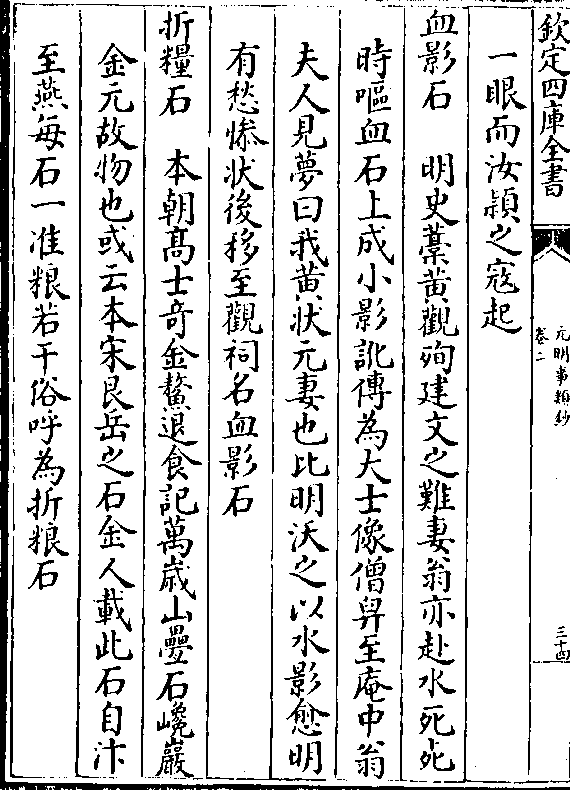 欽定四庫全書
元明事類鈔
卷二
三十四
一眼而汝潁之寇起
血影石　明史藁黄觀殉建文之難妻翁亦赴水死死
時嘔血石上成小影訛傳為大士像僧舁至庵中翁
夫人見夢曰我黄狀元妻也比明沃之以水影愈明
有愁惨状後移至觀祠名血影石
折糧石　本朝髙士奇金鰲退食記萬歲山疊石巉巖
金元故物也或云本宋艮岳之石金人載此石自汴
至燕每石一准粮若干俗呼為折粮石